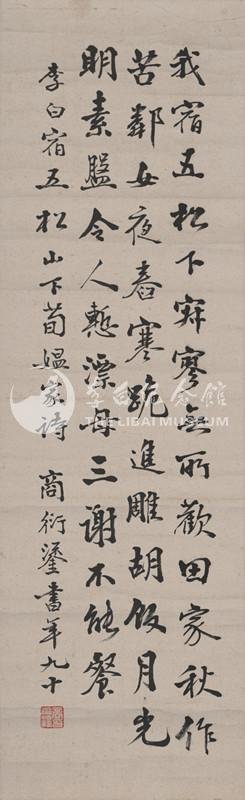 我宿五松下寂寥無所歡田家秋作
苦鄰女夜舂寒跪進雕胡飯月光
明素盤令人慙漂母三謝不能餐
李白宿五松山下荀媼家詩 商衍鎏書年九十
李白紀念館
THE LIBAI MUSEUM